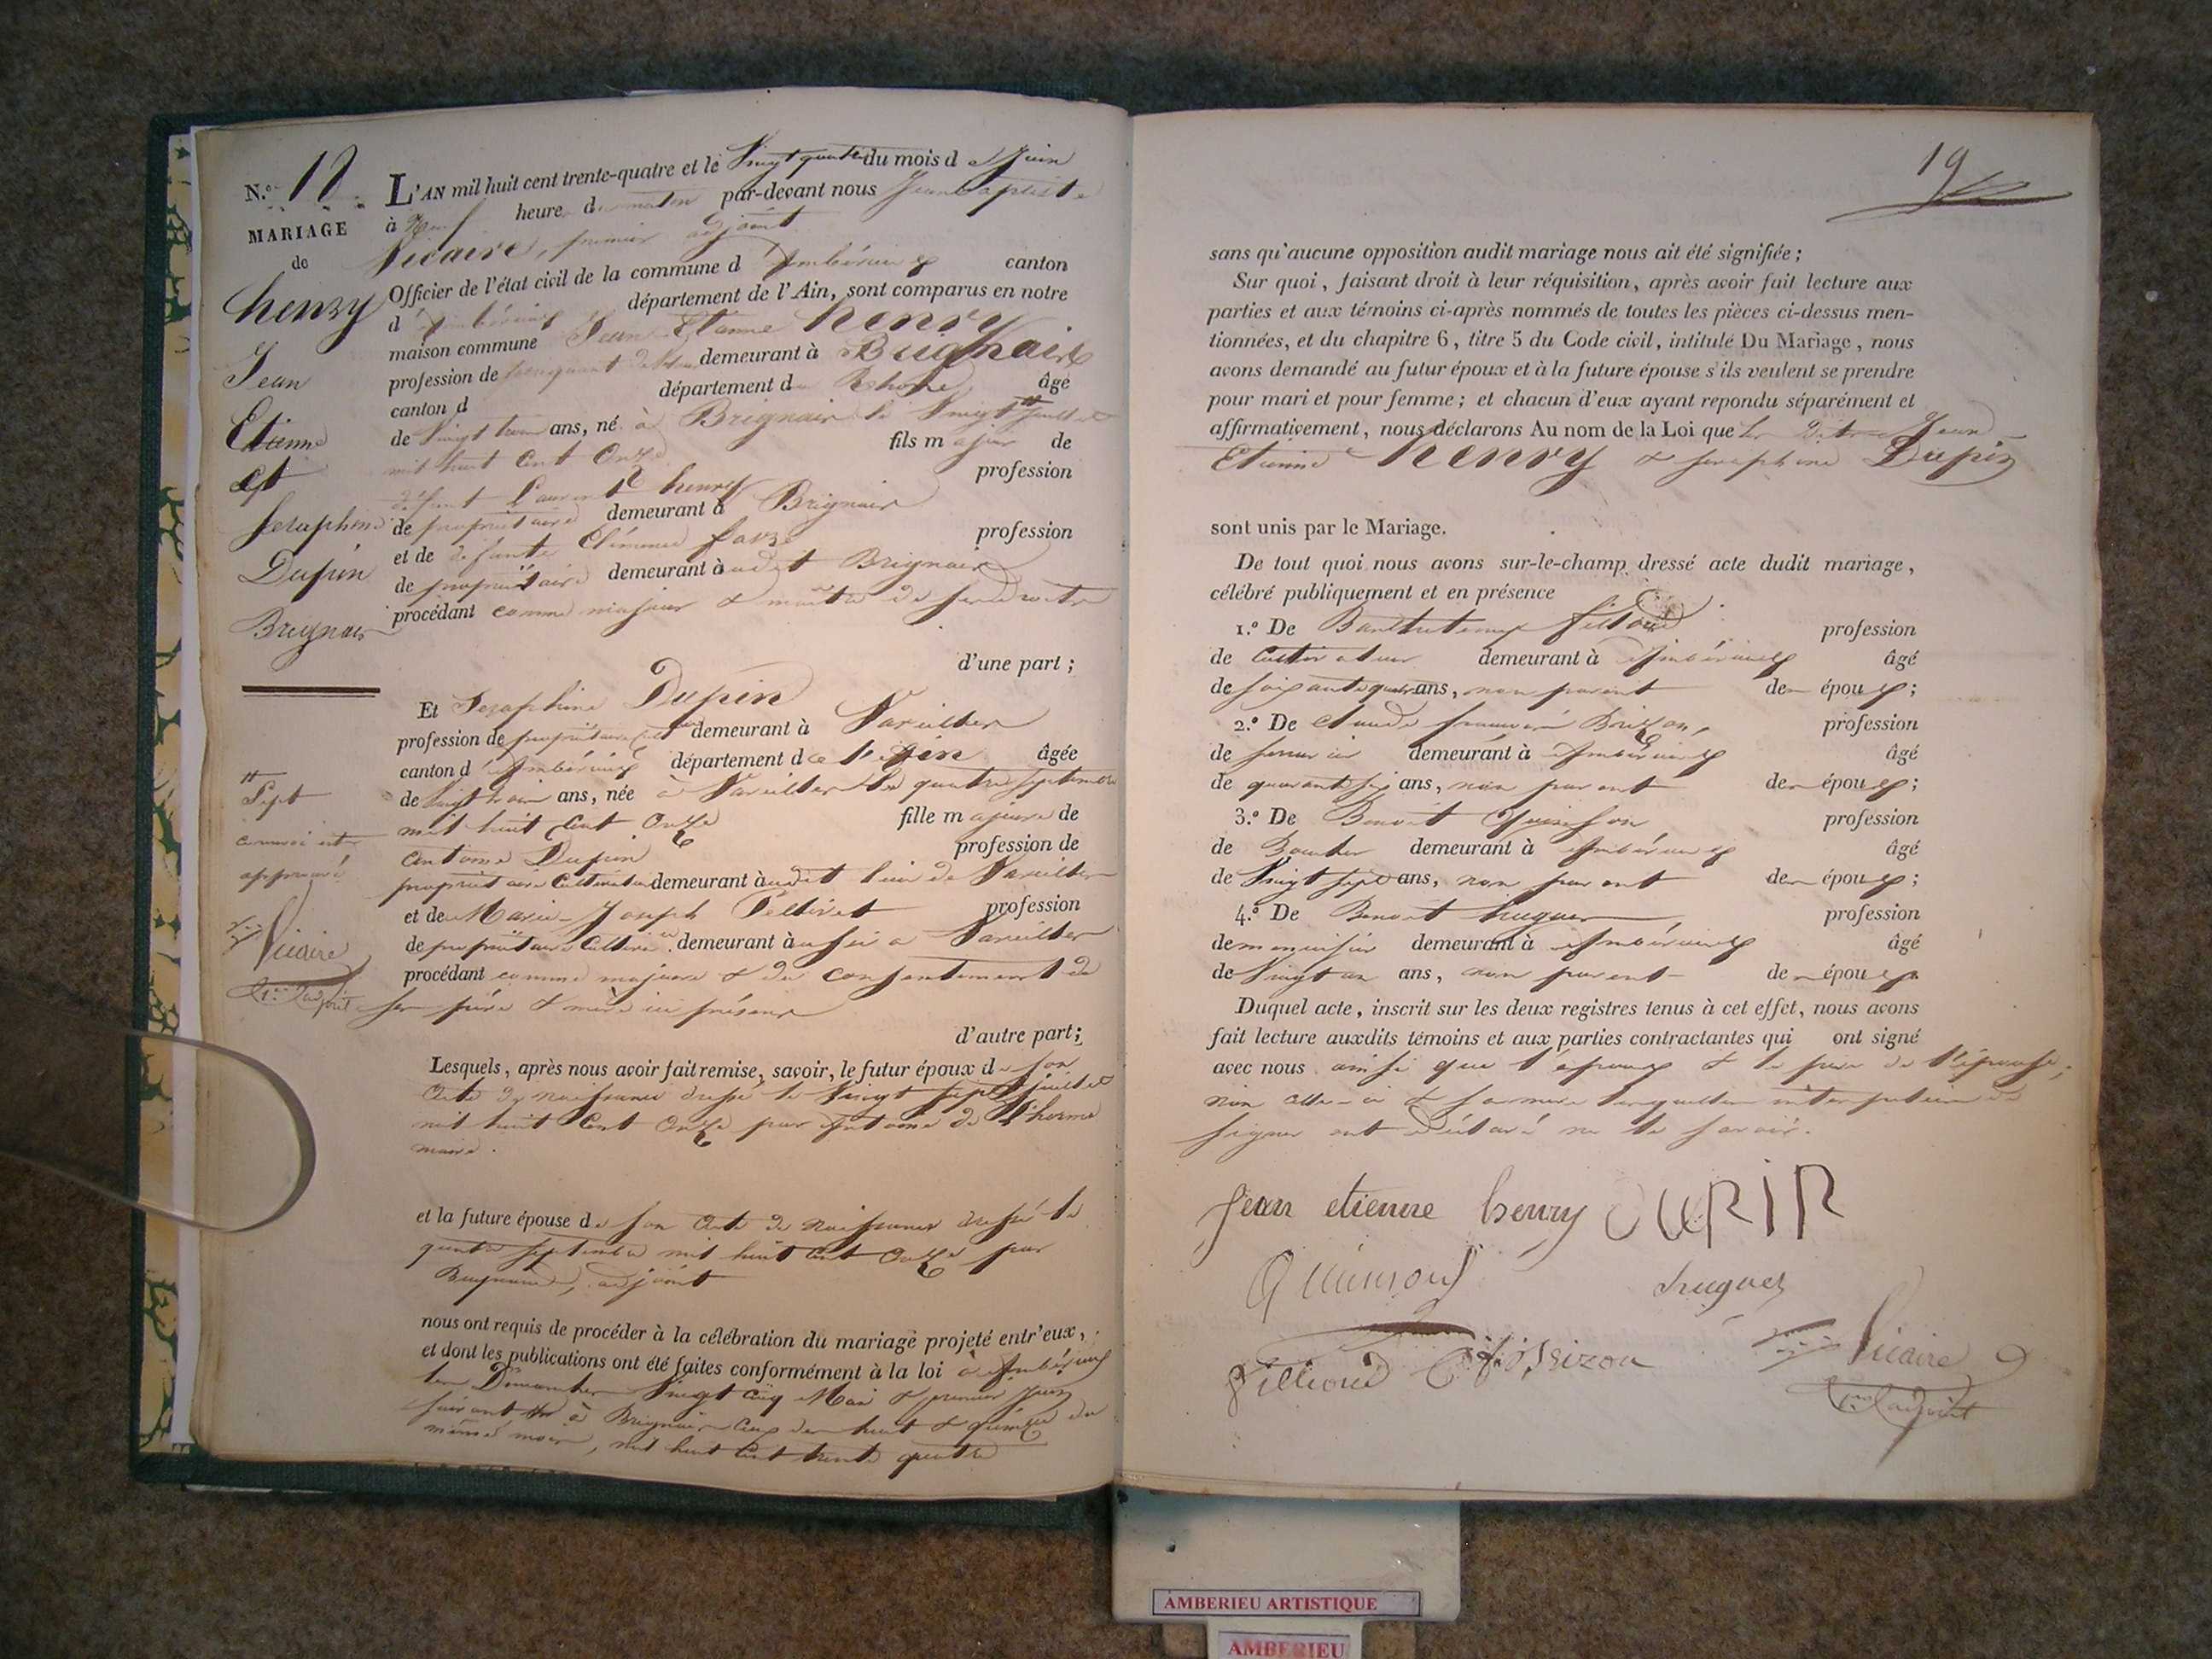 N.º 18
MARIAGE
de
henry
Jean
Etienne
et
Seraphine
Dupin
Brignais
L'AN mil huit cent trente-quatre et le Vingt quatre du mois de Juin
à Neuf heures du matin par-devant nous Jean Baptiste
Vicaire, premier adjoint
Officier de l'état civil de la commune d'Ambérieux canton
d'Ambérieux département de l'Ain, sont comparus en notre
maison commune Jean Etienne henry
profession de demeurant à Brignais
canton d département du Rhône âgé
de Vingt trois ans, né à Brignais le Vingt juillet
mil huit cent Onze fils majeur de
défunt Laurent henry profession
de propriétaire demeurant à Brignais
et de défunte Clémence favre profession
de propriétaire demeurant à audit Brignais
procédant comme majeur & maître de ses droits
d'une part ;
Et Seraphine Dupin
profession de propriétaire cult demeurant à Vareilles
canton d'Ambérieux département de l'Ain âgée
de Vingt trois ans, née à Vareilles le quatre septembre
mil huit cent Onze fille majeure de
Antoine Dupin profession de
propriétaire Cultivateur demeurant à audit lieu de Vareilles
et de Marie-Joseph Pellivet profession
de propriétaire Cultiv demeurant à aussi à Vareilles
procédant comme majeure & du consentement de
ses père & mère ici présens
d'autre part ;
Sept
renvoi
approuvé
Vicaire
1er adjoint
Lesquels, après nous avoir fait remise, savoir, le futur époux de son
Acte de naissance dressé le Vingt sept juillet
mil huit Cent Onze par Antoine de l'horme
maire.
et la future épouse de son Acte de naissance dressé le
quatre septembre mil huit cent Onze par
adjoint
nous ont requis de procéder à la célébration du mariage projeté entr'eux,
et dont les publications ont été faites conformément à la loi à Ambérieux
les Dimanches Vingt cinq Mai & premier Juin
suivant & à Brignais ceux des huit & quinze du
même mois, mil huit cent trente quatre
19
sans qu'aucune opposition audit mariage nous ait été signifiée ;
Sur quoi, faisant droit à leur réquisition, après avoir fait lecture aux
parties et aux témoins ci-après nommés de toutes les pièces ci-dessus men-
tionnées, et du chapitre 6, titre 5 du Code civil, intitulé Du Mariage, nous
avons demandé au futur époux et à la future épouse s'ils veulent se prendre
pour mari et pour femme ; et chacun d'eux ayant repondu séparément et
affirmativement, nous déclarons Au nom de la Loi que les dits Jean
Etienne henry & seraphine Dupin
sont unis par le Mariage.
De tout quoi nous avons sur-le-champ dressé acte dudit mariage,
célébré publiquement et en présence
1.º De Barthelemy fillioud profession
de Cultivateur demeurant à Ambérieux âgé
de soixante quatre ans, non parent des époux ;
2.º De Claude françois Brizon, profession
de serrurier demeurant à Ambérieux âgé
de quarante six ans, non parent des époux ;
3.º De Benoit Quinson profession
de Boucher demeurant à Ambérieux âgé
de Vingt sept ans, non parent des époux ;
4.º De Benoit hugues profession
de menuisier demeurant à Ambérieux âgé
de Vingt un ans, non parent des époux.
Duquel acte, inscrit sur les deux registres tenus à cet effet, nous avons
fait lecture auxdits témoins et aux parties contractantes qui ont signé
avec nous ainsi que l'époux & le père de l'épouse,
non celle-ci & sa mère lesquelles interpellées de
signer ont déclaré ne le savoir.
Jean etienne henry DUPIN
Quinson hugues
Fillioud Cf Brizon
Vicaire
1er adjoint
AMBERIEU ARTISTIQUE
AMBERIEU